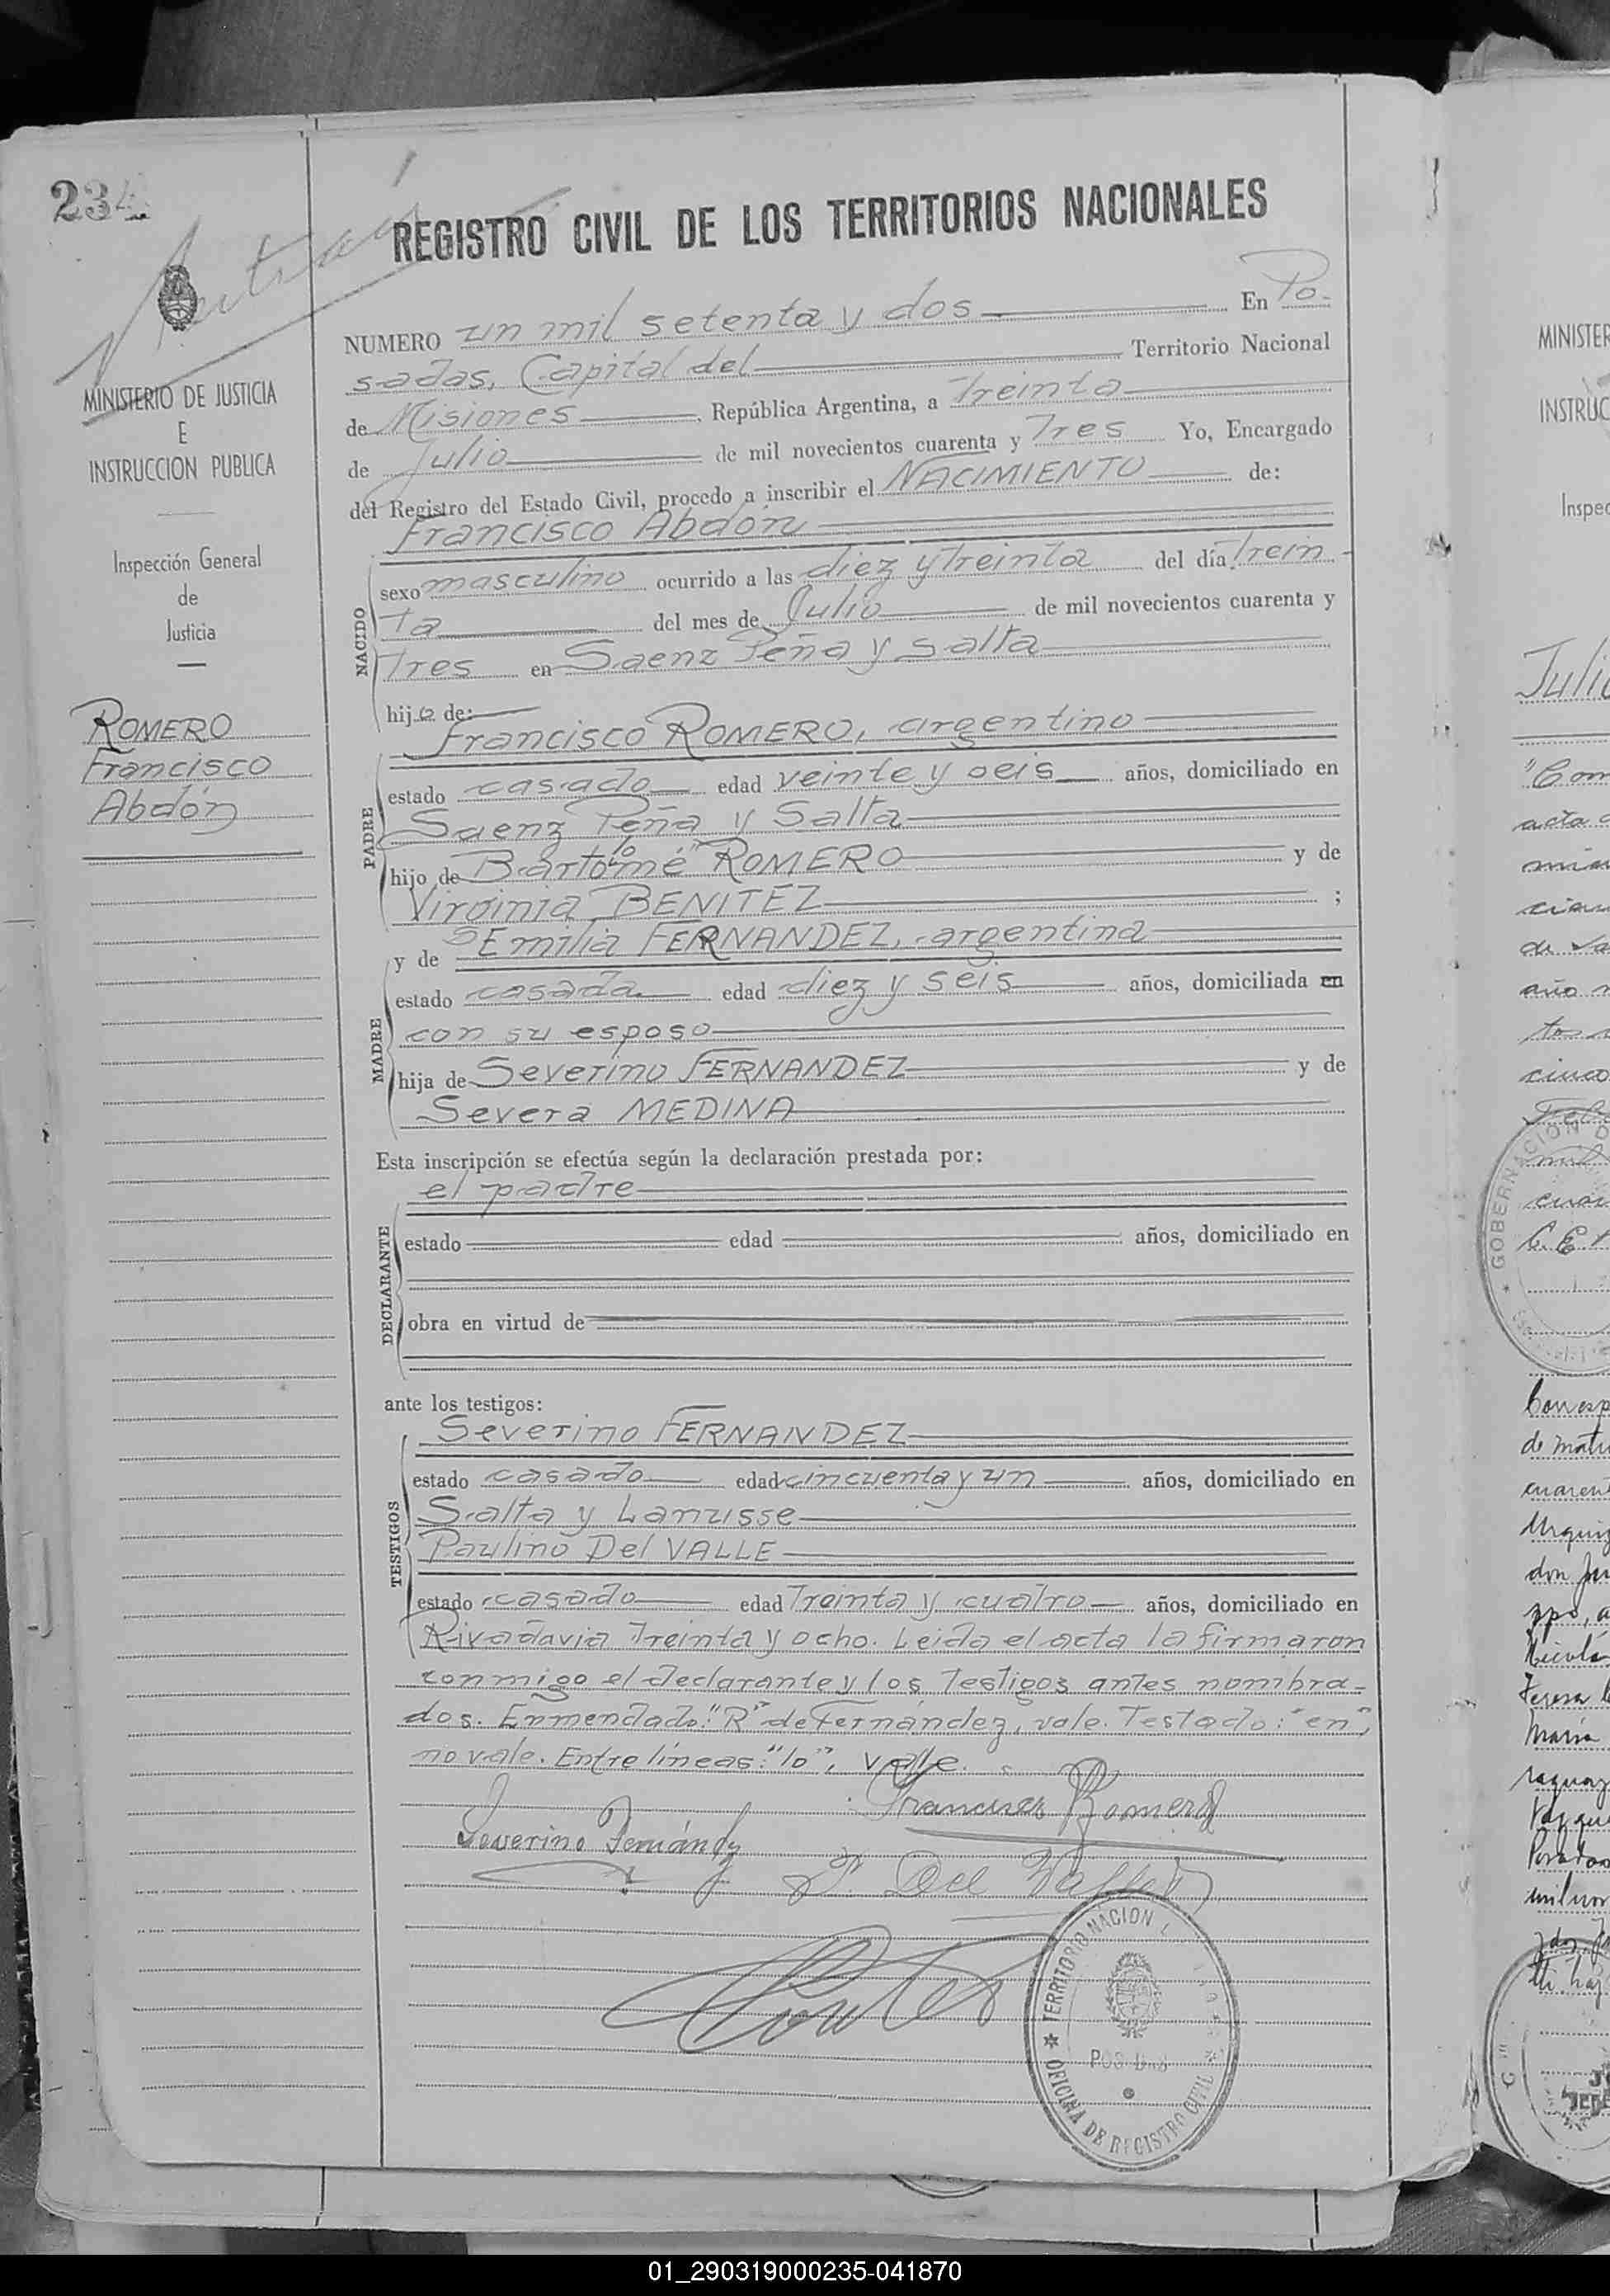 234
REGISTRO CIVIL DE LOS TERRITORIOS NACIONALES
MINISTERIO DE JUSTICIA
E
INSTRUCCION PUBLICA
Inspección General
de
Justicia
ROMERO
Francisco
Abdón
NUMERO un mil setenta y dos En Po-
sadas, Capital del Territorio Nacional
de Misiones, República Argentina, a Treinta
de Julio de mil novecientos cuarenta y Tres Yo, Encargado
del Registro del Estado Civil, procedo a inscribir el NACIMIENTO de:
Francisco Abdón
NACIDO
sexo masculino ocurrido a las diez y Treinta del día Trein-
ta del mes de Julio de mil novecientos cuarenta y
Tres en Saenz Peña y Salta
hijo de:
Francisco ROMERO, argentino
PADRE
estado casado edad veinte y seis años, domiciliado en
Saenz Peña y Salta
hijo de Bartolomé ROMERO y de
Virginia BENITEZ ;
y de Emilia FERNANDEZ, argentina
MADRE
estado casada edad diez y seis años, domiciliada en
con su esposo
hija de Severino FERNANDEZ y de
Severa MEDINA
Esta inscripción se efectúa según la declaración prestada por:
el padre
DECLARANTE
estado edad años, domiciliado en
obra en virtud de
ante los testigos:
Severino FERNANDEZ
TESTIGOS
estado casado edad cincuenta y un años, domiciliado en
Salta y Lanusse
Paulino Del VALLE
estado casado edad Treinta y cuatro años, domiciliado en
Rivadavia Treinta y ocho. Leida el acta la firmaron
conmigo el declarante y los Testigos antes nombra-
dos. Enmendado: "R" de Fernández, vale. Testado: "en",
no vale. Entre líneas: "lo", valle.
Francisco Romero
Severino Fernández
P. Del Valle
TERRITORIO NACION
POSADAS
OFICINA DE REGISTRO CIVIL
MINISTER
INSTRUC
Inspec
Julio
acta
cinco
GOBERNACION D
Corresp
de matr
don Ju
Nicolá
Teresa
María
01_290319000235-041870